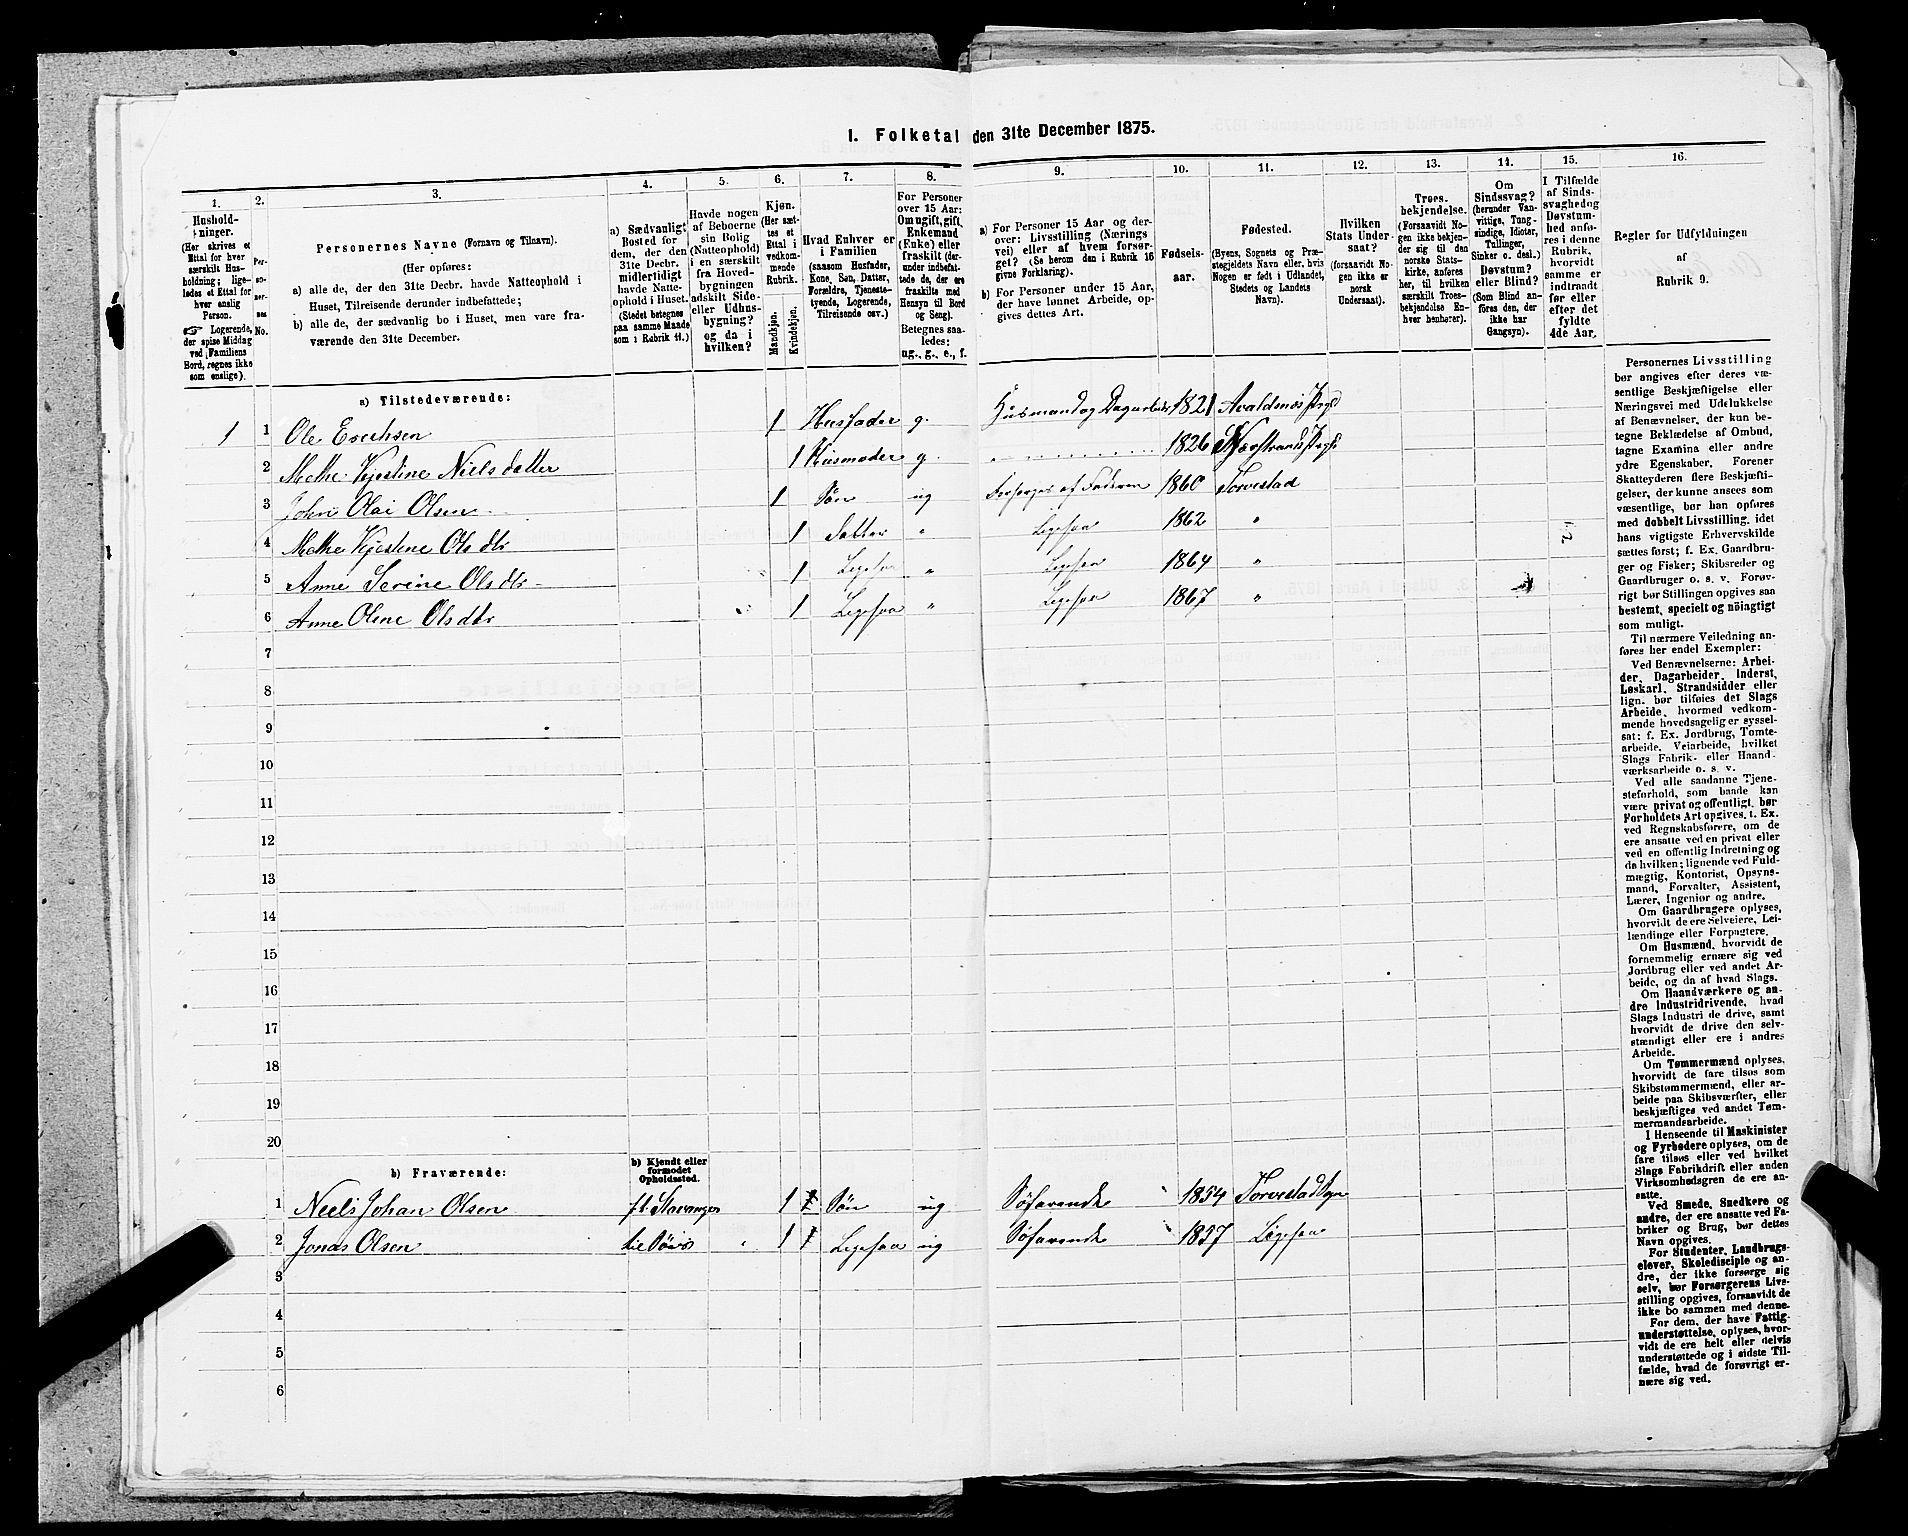 I. Folketal den 31te December 1875.
1.
Hushold-
ninger.
(Her skrives et
Ettal for hver
særskilt Hus-
holdning; lige-
ledes et Ettal for
enslig
Person.
Logerende,
der spise Middag
ved Familiens
Bord, regnes ikke
som enslige).
2.
Per-
so-
ner-
nes
No.
3.
Personernes Navne (Fornavn og Tilnavn).
(Her opføres:
a) alle de, der den 31te Decbr. havde Natteophold i
Huset, Tilreisende derunder indbefattede;
b) alle de, der sædvanlig bo i Huset, men vare fra-
værende den 31te December.
4.
a) Sædvanligt
Bosted for
dem, der den
31te Decbr.
midlertidigt
havde Natte-
ophold i Huset.
(Stedet betegnes
paa samme Maade
som i Rubrik 11.)
5.
Havde nogen
af Beboerne
sin Bolig
(Natteophold)
i en særskilt
fra Hoved-
bygningen
adskilt Side-
eller Udhus-
bygning?
og da i
hvilken?
6.
Kjøn.
(Her sæt-
tes et
Ettal i
vedkom-
mende
Rubrik.
Mandkjøn.
Kvindekjøn.
7.
Hvad Enhver er
i Familien
(saasom Husfader,
Kone, Søn, Datter,
Forældre, Tjeneste-
tyende, Logerende,
Tilreisende osv.)
8.
For Personer
over 15 Aar:
Om ugift, gift,
Enkemand
(Enke) eller
fraskilt (der-
under indbefat-
tede de, der ere
fraskilte med
Hensyn til Bord
og Seng).
Betegnes saa-
ledes:
ug., g., e., f.
9.
a) For Personer 15 Aar og der-
over: Livsstilling (Nærings
vei) eller af hvem forsør-
get? (Se herom den i Rubrik 16
givne Forklaring).
b) For Personer under 15 Aar,
der have lønnet Arbeide, op-
gives dettes Art.
10.
Fødsels-
aar.
11.
Fødested.
(Byens, Sognets og Præ-
stegjeldets Navn eller, hvis
Nogen er født i Udlandet,
Stedets og Landets
Navn).
12.
Hvilken
Stats Under-
saat?
(forsaavidt No-
gen ikke er
norsk
Undersaat).
13.
Troes-
bekjendelse.
(Forsaavidt No-
gen ikke bekjen-
der sig til den
norske Stats-
kirke, anføres
her, til hvilken
særskilt Troes-
bekjendelse En-
hver henhører).
14.
Om
Sindssvag?
(herunder Van-
vittige, Tung-
sindige, Idioter,
Tullinger,
Sinker o. desl.)
Døvstum?
eller Blind?
(Som Blind an-
føres den, der
ikke har
Gangsyn).
15.
I Tilfælde
af Sinds-
svaghed og
Døvstum-
hed anfø-
res i denne
Rubrik,
hvorvidt
samme er
indtraadt
før eller
efter det
fyldte
4de Aar.
16.
Regler for Udfyldningen
af
Rubrik 9.
a) Tilstedeværende:
1 1 Ole Erichsen 1 Husfader g. Husmand og Dagarbeider 1821 Avaldsnæs Prgd
2 Methe Kjestine Nielsdatter 1 Husmoder g. „ 1826 Nærstrands Prgd
3 John Olai Olsen 1 Søn ug Forsørges af Faderen 1860 Torvestad
4 Methe Kjestine Olsdtr 1 Datter „ Ligesaa 1862 „
5 Anne Serine Olsdtr 1 Ligesaa „ Ligesaa 1864 „
6 Anne Oline Olsdtr 1 Ligesaa „ Ligesaa 1867 „
7
8
9
10
11
12
13
14
15
16
17
18
19
20
b) Fraværende:
b) Kjendt eller
formodet
Opholdssted.
1 Niels Johan Olsen p.t. Stavanger 1 Søn ug Søfarende 1854 Torvestad Sogn
2 Jonas Olsen til Søes 1 Ligesaa ug Søfarende 1857 Ligesaa
3
4
5
6
Personernes Livsstilling
bør angives efter deres væ-
sentlige Beskjæftigelse eller
Næringsvei med Udelukkelse
af Benævnelser, der kun be-
tegne Beklædelse af Ombud,
tagne Examina eller andre
ydre Egenskaber. Forener
Skatteyderen flere Beskjæfti-
gelser, der kunne ansees som
væsentlige, bør han opføres
med dobbelt Livsstilling, idet
hans vigtigste Erhvervskilde
sættes først; f. Ex. Gaardbru-
ger og Fisker; Skibsreder og
Gaardbruger o. s. v. Forøv-
rigt bør Stillingen opgives saa
bestemt, specielt og nøiagtigt
som muligt.
Til nærmere Veiledning an-
føres her endel Exempler:
Ved Benævnelserne: Arbei-
der, Dagarbeider, Inderst,
Løskarl, Strandsidder eller
lign. bør tilføies det Slags
Arbeide, hvormed vedkom-
mende hovedsagelig er syssel-
sat; f. Ex. Jordbrug, Tomte-
arbeide, Veiarbeide, hvilket
Slags Fabrik- eller Haand-
værksarbeide o. s. v.
Ved alle saadanne Tjene-
steforhold, som baade kan
være privat og offentligt, bør
Forholdets Art opgives, t. Ex.
ved Regnskabsførere, om de
ere ansatte ved en privat eller
ved en offentlig Indretning og
da hvilken; lignende ved Fuld-
mægtig, Kontorist, Opsyns-
mand, Forvalter, Assistent,
Lærer, Ingeniør og andre.
Om Gaardbrugere oplyses,
hvorvidt de ere Selveiere, Lei-
lændinge eller Forpagtere.
Om Husmænd, hvorvidt de
fornemmelig ernære sig ved
Jordbrug eller ved andet Ar-
beide, og da af hvad Slags.
Om Haandværkere og an-
dre Industridrivende, hvad
Slags Industri de drive, samt
hvorvidt de drive den selv-
stændigt eller ere i andres
Arbeide.
Om Tømmermænd oplyses,
hvorvidt de fare tilsøs som
Skibstømmermænd, eller ar-
beide paa Skibsværfter, eller
beskjæftiges ved andet Tøm-
mermandsarbeide.
I Henseende til Maskinister
og Fyrbødere oplyses, om de
fare tilsøs eller ved hvilket
Slags Fabrikdrift eller anden
Virksomhedsgren de ere an-
satte.
Ved Smede, Snedkere og
andre, der ere ansatte ved Fa-
briker og Brug, bør dettes
Navn opgives.
For Studenter, Landbrugs-
elever, Skoledisciple og an-
dre, der ikke forsørge sig
selv, bør Forsørgerens Livs-
stilling opgives, forsaavidt de
ikke bo sammen med denne.
For dem, der have Fattig-
understøttelse, oplyses, hvor-
vidt de ere helt eller delvis
understøttede og i sidste Til-
fælde, hvad de forøvrigt er-
nære sig ved.